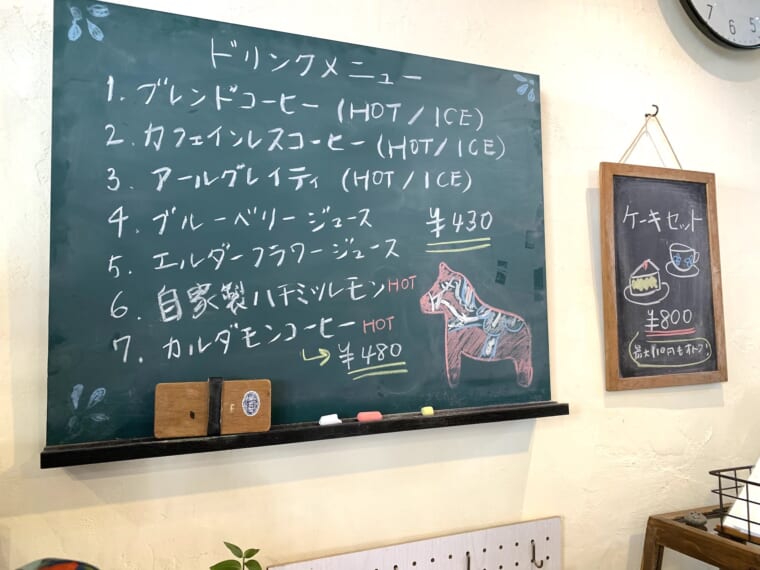 ドリンクメニュー
1. ブレンドコーヒー (HOT / ICE)
2. カフェインレスコーヒー (HOT / ICE)
3. アールグレイティ (HOT / ICE)
4. ブルーベリージュース ¥430
5. エルダーフラワージュース
6. 自家製ハチミツレモン HOT
7. カルダモンコーヒー HOT
¥480
ケーキセット
¥800
最大110円もオトク!
7 6 5